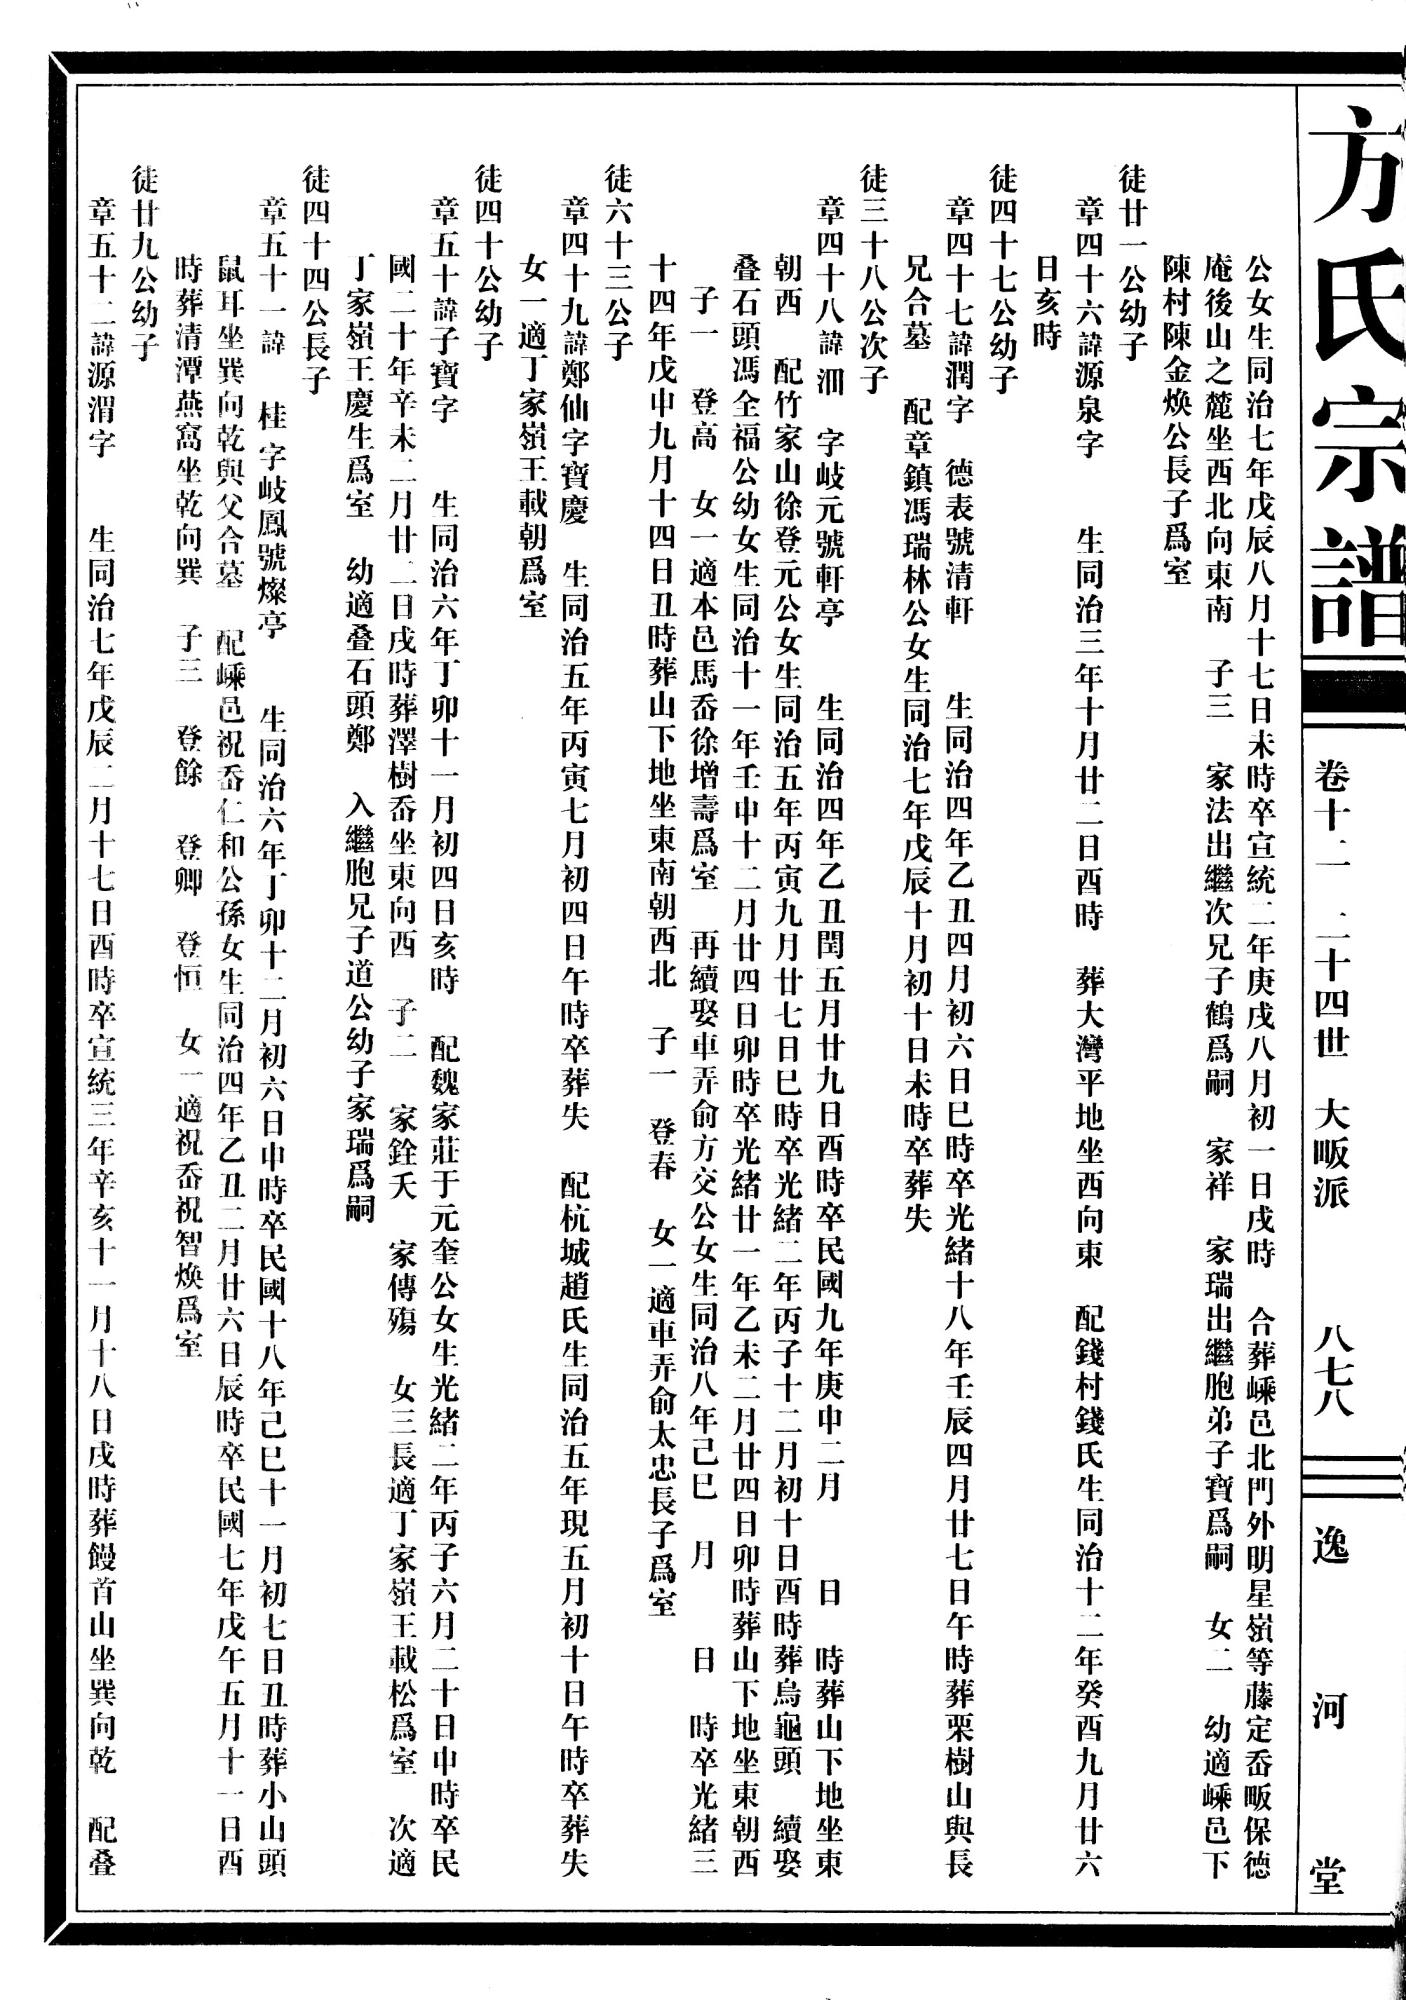 方氏宗譜
卷十二　二十四世　大畈派　八七八
逸河堂
公女生同治七年戊辰八月十七日未時卒宣統二年庚戌八月初一日戌時　合葬嵊邑北門外明星嶺等藤定岙畈保德
庵後山之麓坐西北向東南　子三　家法出繼次兄子鶴爲嗣　家祥　家瑞出繼胞弟子寶爲嗣　女二　幼適嵊邑下
陳村陳金煥公長子爲室
徒廿一公幼子
章四十六諱源泉字　生同治三年十月廿二日酉時　葬大灣平地坐西向東　配錢村錢氏生同治十二年癸酉九月廿六
日亥時
徒四十七公幼子
章四十七諱潤字　德表號清軒　生同治四年乙丑四月初六日巳時卒光緒十八年壬辰四月廿七日午時葬栗樹山與長
兄合墓　配章鎮馮瑞林公女生同治七年戊辰十月初十日未時卒葬失
徒三十八公次子
章四十八諱沺　字岐元號軒亭　生同治四年乙丑閏五月廿九日酉時卒民國九年庚申二月　日　時葬山下地坐東
朝西　配竹家山徐登元公女生同治五年丙寅九月廿七日巳時卒光緒二年丙子十二月初十日酉時葬烏龜頭　續娶
叠石頭馮全福公幼女生同治十一年壬申十二月廿四日卯時卒光緒廿一年乙未二月廿四日卯時葬山下地坐東朝西
子一　登高　女一適本邑馬岙徐增壽爲室　再續娶車弄俞方交公女生同治八年己巳　月　日　時卒光緒三
十四年戊申九月十四日丑時葬山下地坐東南朝西北　子一　登春　女一適車弄俞太忠長子爲室
徒六十三公子
章四十九諱鄭仙字寶慶　生同治五年丙寅七月初四日午時卒葬失　配杭城趙氏生同治五年現五月初十日午時卒葬失
女一適丁家嶺王載朝爲室
徒四十公幼子
章五十諱子寶字　生同治六年丁卯十一月初四日亥時　配魏家莊于元奎公女生光緒二年丙子六月二十日申時卒民
國二十年辛未二月廿二日戌時葬澤樹岙坐東向西　子二　家銓夭　家傳殤　女三長適丁家嶺王載松爲室　次適
丁家嶺王慶生爲室　幼適叠石頭鄭　入繼胞兄子道公幼子家瑞爲嗣
徒四十四公長子
章五十一諱　桂　字岐鳳號燦亭　生同治六年丁卯十二月初六日申時卒民國十八年己巳十一月初七日丑時葬小山頭
鼠耳坐巽向乾與父合墓　配嵊邑祝岙仁和公孫女生同治四年乙丑二月廿六日辰時卒民國七年戊午五月十一日酉
時葬清潭燕窩坐乾向巽　子三　登餘　登卿　登恒　女一適祝岙祝智煥爲室
徒廿九公幼子
章五十二諱源渭字　生同治七年戊辰二月十七日酉時卒宣統三年辛亥十一月十八日戌時葬饅首山坐巽向乾　配叠